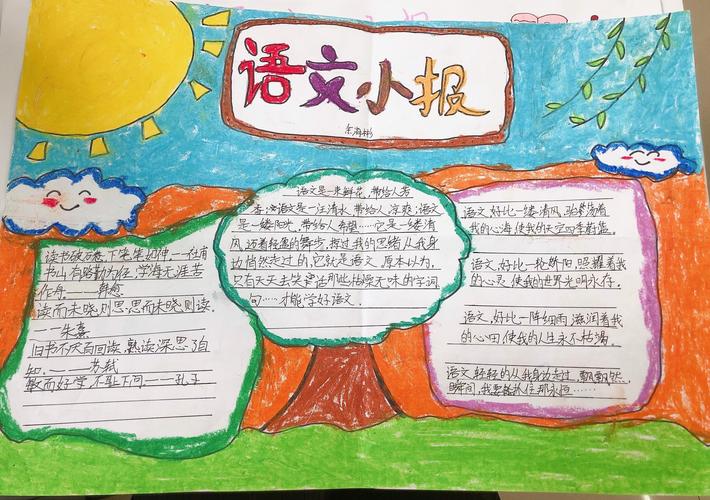 语文小报
余海彬
读书破万卷,下笔如伸,一一在有
书山有路勤为径,学海无涯苦
作舟。一一韩愈
读而未晓,则思,思而未晓,则读.
一一朱熹
旧书不厌百回读,熟读深思了自
知.一.一一苏轼
敏而好学,不耻下问.一一孔子
一语文是一束鲜花,带给人芳
香;语文是一汪清水,带给人凉爽;语文
是一缕阳光,带给人希望……它是一缕清
风,迈着轻盈的舞步,挥过我的思绪从我身
边悄然走过的,它就是语文,原本以为,
只有天天去笑那些枯燥无味的字词
句……才能学好语文.
语文,好比一缕清风,荡着
我的心海,使我的天空四季蔚蓝。
语文,好比一轮骄阳,照耀着我
的心灵,使我的世界光明永存.
语文,好比一阵细雨,滋润着我
的心田,使我的人生永不枯竭.
语文轻轻的从我身边走过,飘飘然.
瞬间,我要抓住那永恒……